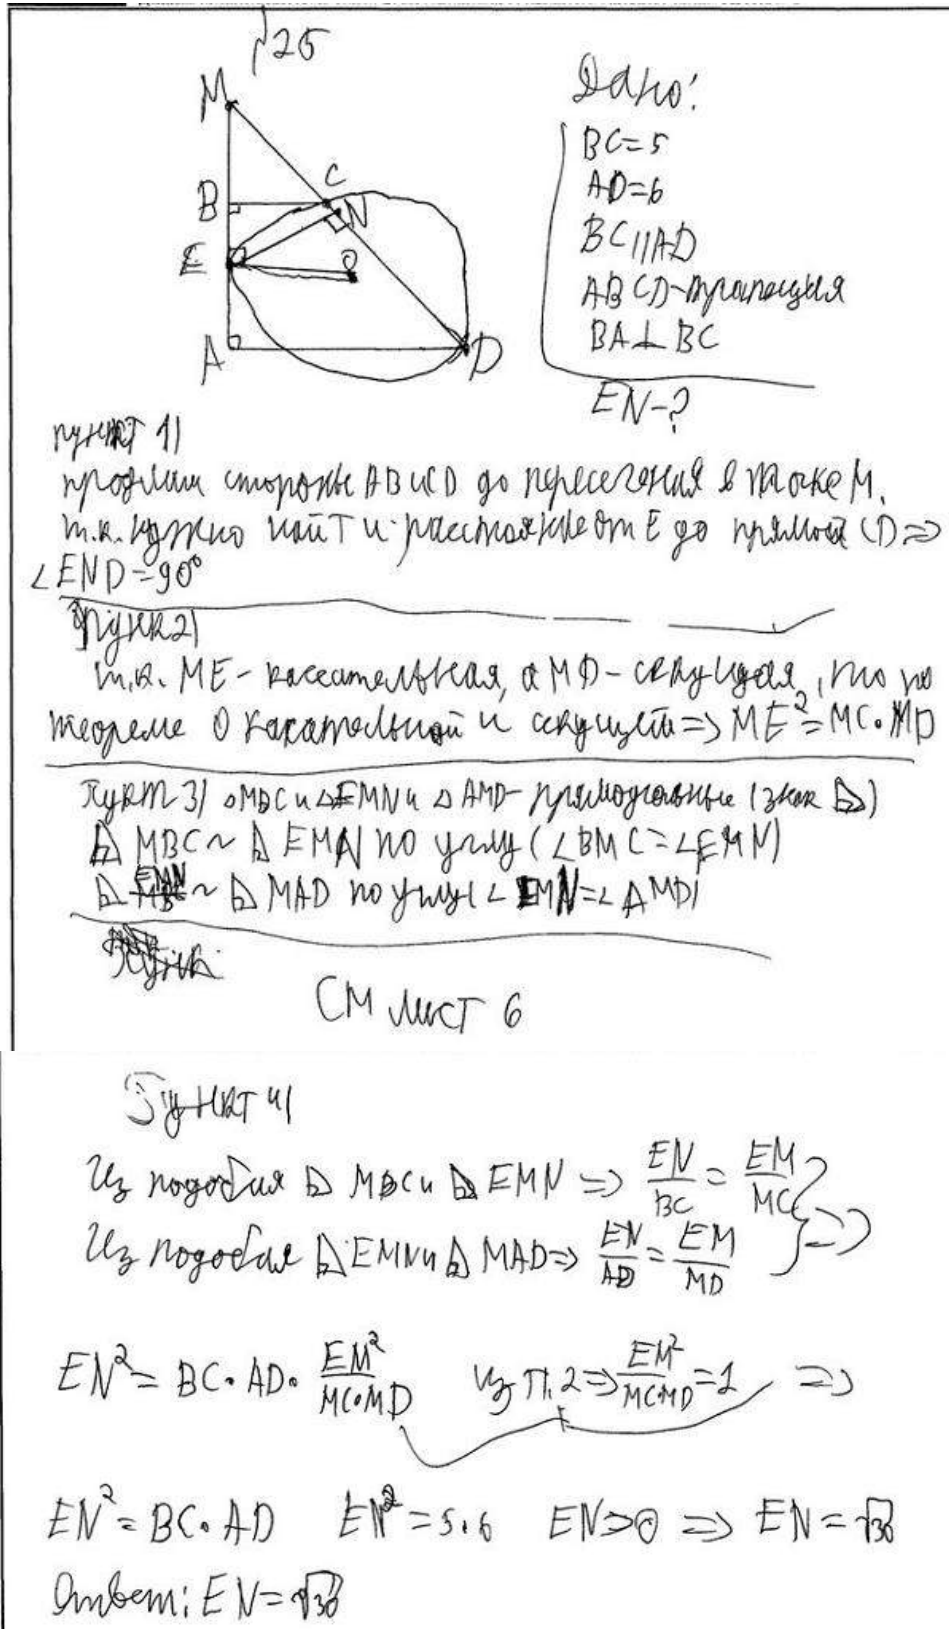 25
M
B
C
N
E
O
A
D
Дано:
BC=5
AD=6
BC||AD
ABCD-трапеция
BA⊥BC
EN-?
пункт 1)
продлим стороны AB и CD до пересечения в точке M.
т.к. нужно найти расстояние от E до прямой CD ⇒
∠END=90°
пункт 2)
т.к. ME - касательная, а MD - секущая, то по
теореме о касательной и секущей ⇒ ME²=MC·MD
Пункт 3) △MBC и △EMN и △AMD - прямоугольные (знак ⊿)
⊿ MBC ~ ⊿ EMN по углу (∠BMC=∠EMN)
⊿ EMN ~ ⊿ MAD по углу (∠EMN=∠AMD)
СМ лист 6
Пункт 4)
Из подобия ⊿ MBC и ⊿ EMN ⇒ EN/BC = EM/MC
Из подобия ⊿ EMN и ⊿ MAD ⇒ EN/AD = EM/MD } ⇒
EN²=BC·AD·EM²/(MC·MD) из п.2 ⇒ EM²/(MC·MD)=1 ⇒
EN²=BC·AD EN²=5·6 EN>0 ⇒ EN=√30
Ответ: EN=√30